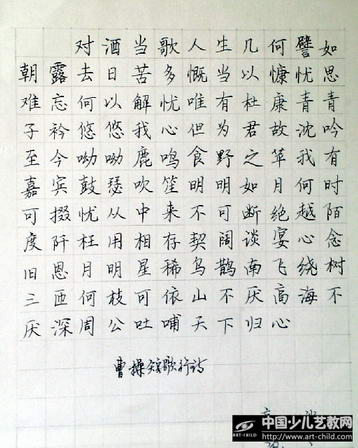 对酒当歌人生几何譬如
朝露去日苦多慨当以慷忧思
难忘何以解忧唯有杜康青青
子衿悠悠我心但为君故沈吟
至今呦呦鹿鸣食野之苹我有
嘉宾鼓瑟吹笙明明如月何时
可掇忧从中来不可断绝越陌
度阡枉用相存契阔谈宴心念
旧恩月明星稀乌鹊南飞绕树
三匝何枝可依山不厌高海不
厌深周公吐哺天下归心
曹操短歌行诗
中国少儿艺教网
www.art-child.com